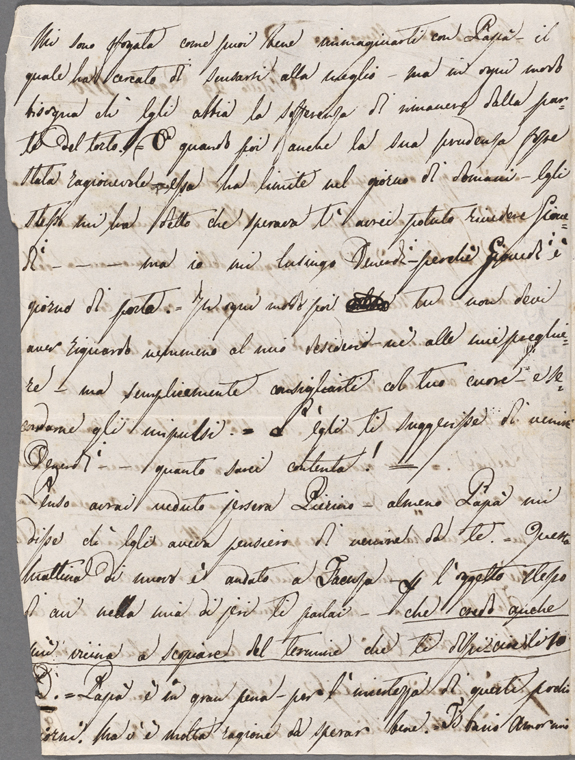 Mi sono sfogata come puoi bene immaginarti con Papà - il
quale ha cercato di scusarsi alla meglio - ma in ogni modo
bisogna ch' Egli abbia la sofferenza di rimanere dalla par-
te del torto. = E quando poi anche la sua prudenza fosse
stata ragionevole - essa ha limite nel giorno di domani - Egli
stesso mi ha detto che sperava t' avrei potuto rivedere Giove-
dì - - - ma io mi lusingo Venerdì - perchè Giovedì è
giorno di posta. = In ogni modo poi tu non devi
aver riguardo nemmeno al mio desiderio - nè alle mie preghie-
re - ma semplicemente consigliarti col tuo cuore - e se-
condarne gli impulsi. = S' egli ti suggerisse di venire
Venerdì - - quanto sarei contenta! =
Penso avrai veduto jersera Pierino - almeno Papà mi
disse ch' Egli aveva pensiero di venire da te. = Questa
mattina di nuovo è andato a Faenza per l'oggetto stesso
di cui nella mia di jeri ti parlai - che credo anche
più vicina a seguire del termine che ti
= Papà è in gran pena - per l'incertezza di questi pochi
giorni. Ma v' è molta ragione da sperar bene. Ti bacio Amor mio